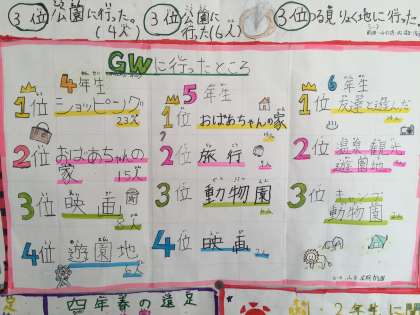 ③位公園に行った。
(4人)
③位公園に
行った(6人)
③位つるみりょく地に行った。
GWに行ったところ
4年生
1位 ショッピング
23人
2位 おばあちゃんの
家 15人
3位 映画
4位 遊園地
5年生
1位 おばあちゃんの家
2位 旅行
3位 動物園
4位 映画
6年生
1位 友達と遊んだ
2位 温泉 観光
遊園地
3位 キャンプ
動物園
四年春の遠足
2年生に